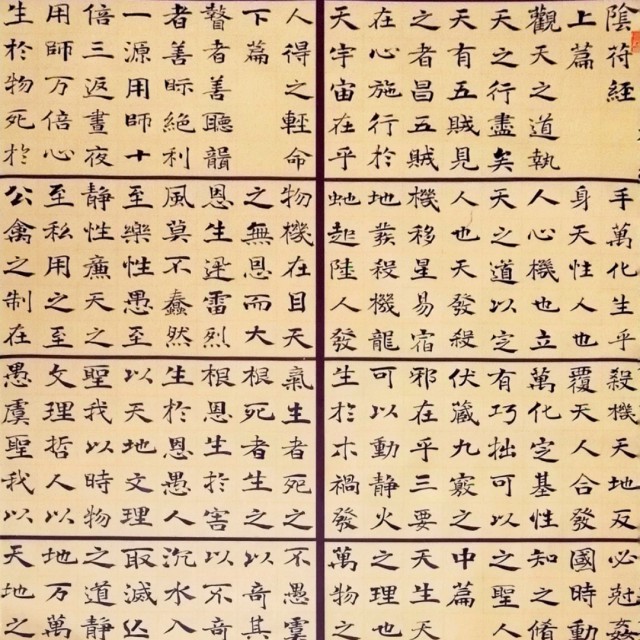 陰符經
上篇
觀天之道執
天之行盡矣
天有五賊見
之者昌五賊
在心施行於
天宇宙在乎
手萬化生乎
身天性人也
人心機也立
天之道以定
人也天發殺
機移星易宿
地發殺機龍
虵起陸人發
殺機天地反
覆天人合發
萬化定基性
有巧拙可以
伏藏九竅之
邪在乎三要
可以動静火
生於木禍發
必剋姦
國時動
知之脩
之聖人
中篇
天生天
之理也
萬物之
人得之輕命
下篇
瞽者善聽聾
者善眎絶利
一源用師十
倍三返晝夜
用師万倍心
生於物死於
物機在目天
之無恩而大
恩生迅雷烈
風莫不蠢然
至樂性愚至
静性廉天之
至私用之至
公禽之制在
氣生者死之
根死者生之
根恩生於害
生於恩愚人
以天地文理
聖我以時物
文理哲人以
愚虞聖我以
不愚虞
以奇其
以不奇
沉水入
取滅亡
之道静
地万萬
天地之